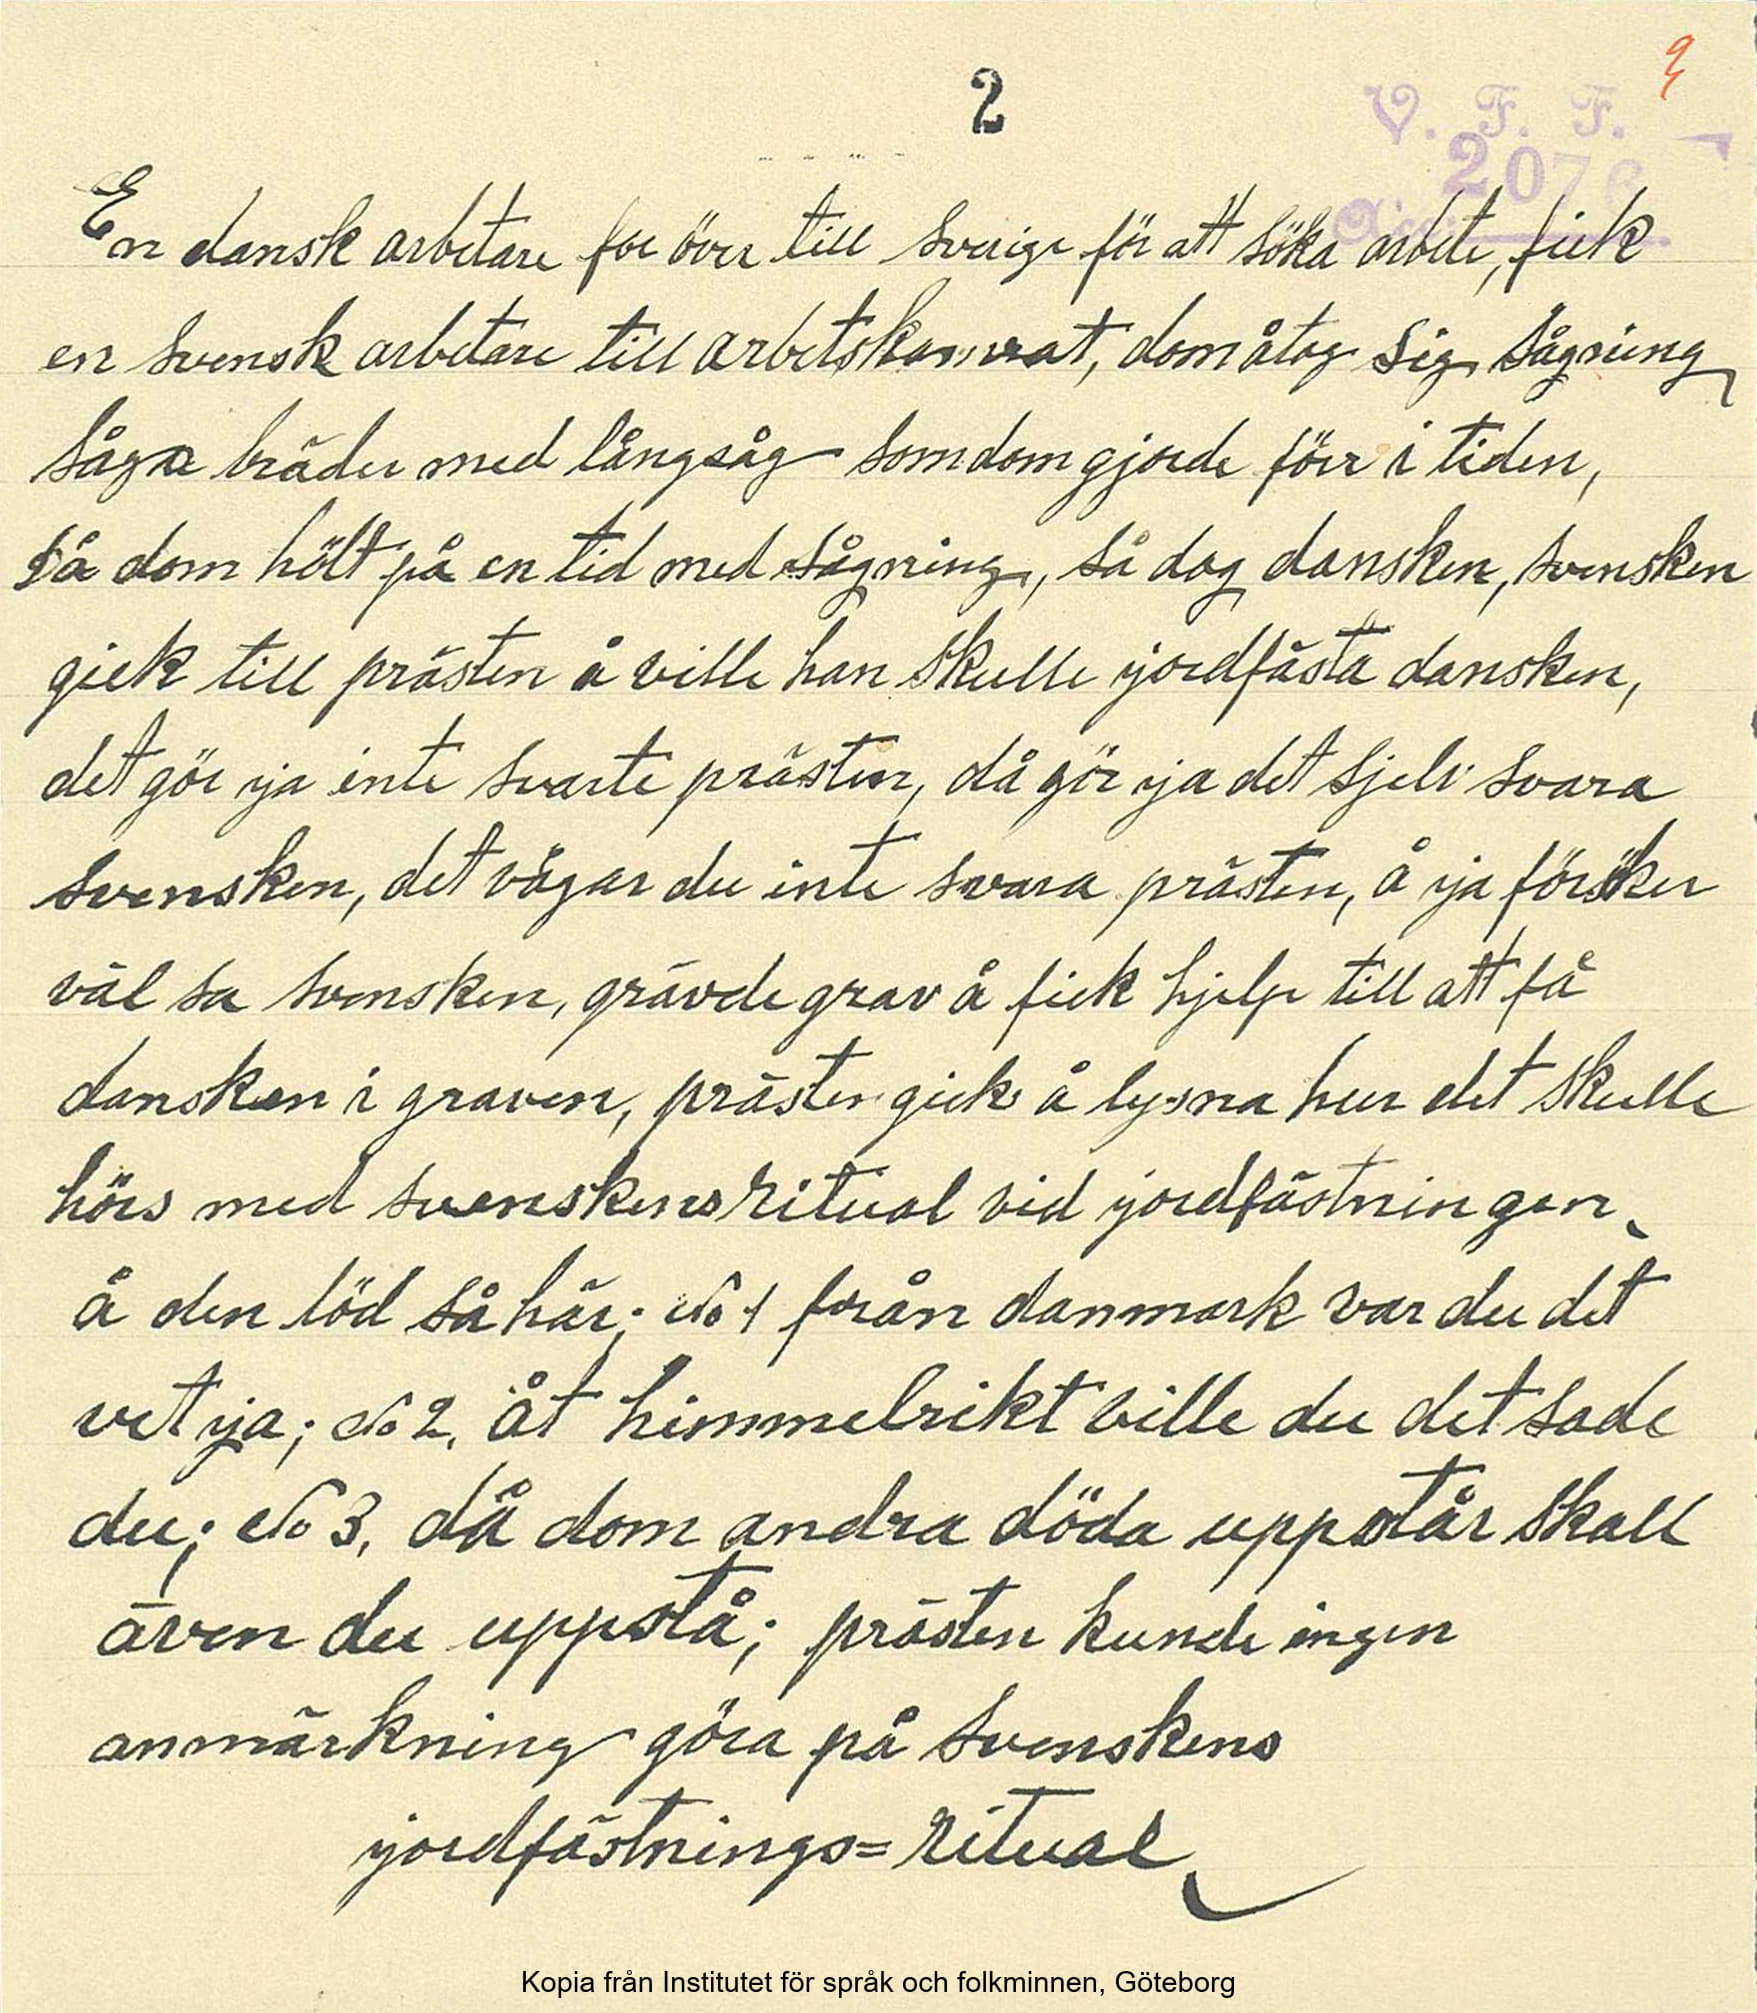 2
V. F. F.
2076
En dansk arbetare for över till Sverige för att söka arbete, fick
en Svensk arbetare till arbetskamrat, dom åtog sig sågning
såga bräder med långsåg som dom gjorde förr i tiden,
Så dom hölt på en tid med sågning, så dog dansken, Svensken
gick till prästen å ville han skulle jordfästa dansken,
det gör ja inte svarte prästen, då gör ja det sjelv svara
svensken, det vågar du inte svara prästen, å ja försöker
väl sa Svensken, grävde grav å fick hjelp till att få
dansken i graven, prästen gick å lysna hur det skulle
hörs med svenskens ritual vid jordfästningen
å den löd så här; No 1 från danmark var du det
vet ja; No 2, åt himmelrikt ville du det sade
du; No 3, då dom andra döda uppstår skall
även du uppstå; prästen kunde ingen
anmärkning göra på Svenskens
jordfästnings=ritual
Kopia från Institutet för språk och folkminnen, Göteborg